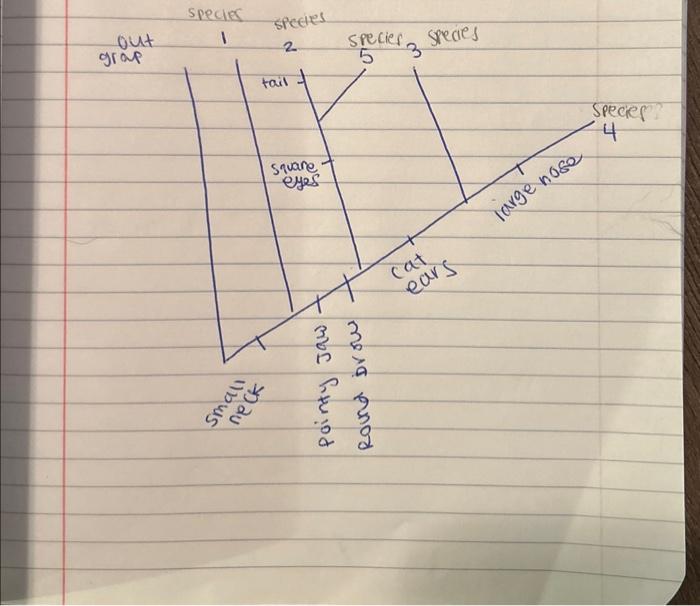 species
1
species
2
species
5
species
3
out
grop
species
4
tail
square
eyes
large nose
cat
ears
small
neck
pointy Jaw
Round brow